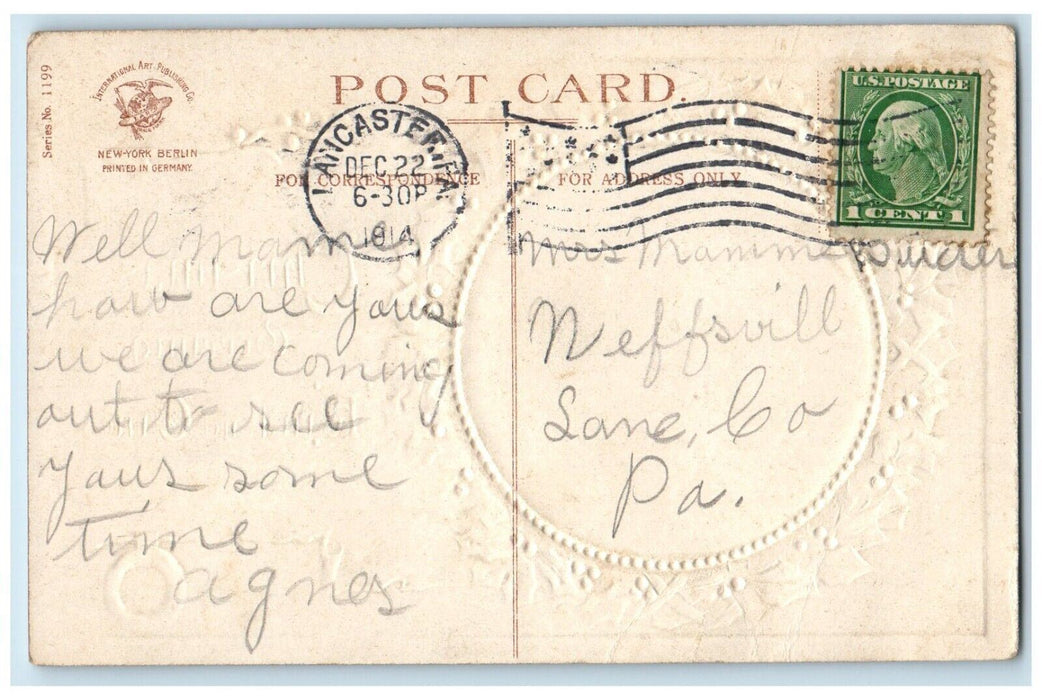 Series No. 1199
INTERNATIONAL ART PUBLISHING CO.
NEW-YORK BERLIN
PRINTED IN GERMANY
POST CARD.
FOR CORRESPONDENCE
FOR ADDRESS ONLY
LANCASTER, PA.
DEC 22
6-30P
1914
U.S. POSTAGE
1 CENT 1
Well Mam
how are yous
we are coming
out to see
yous some
time
Agnes
Mrs Mamme
Neffsvill
Lanc, Co
Pa.